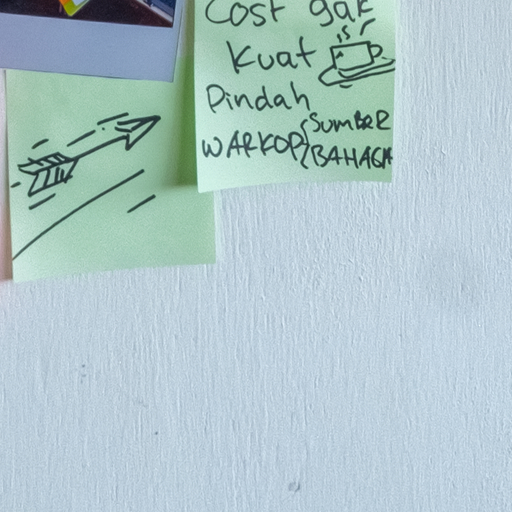 Cost gak
Kuat
Pindah
WARKOP { SUMBER
BAHAGIA